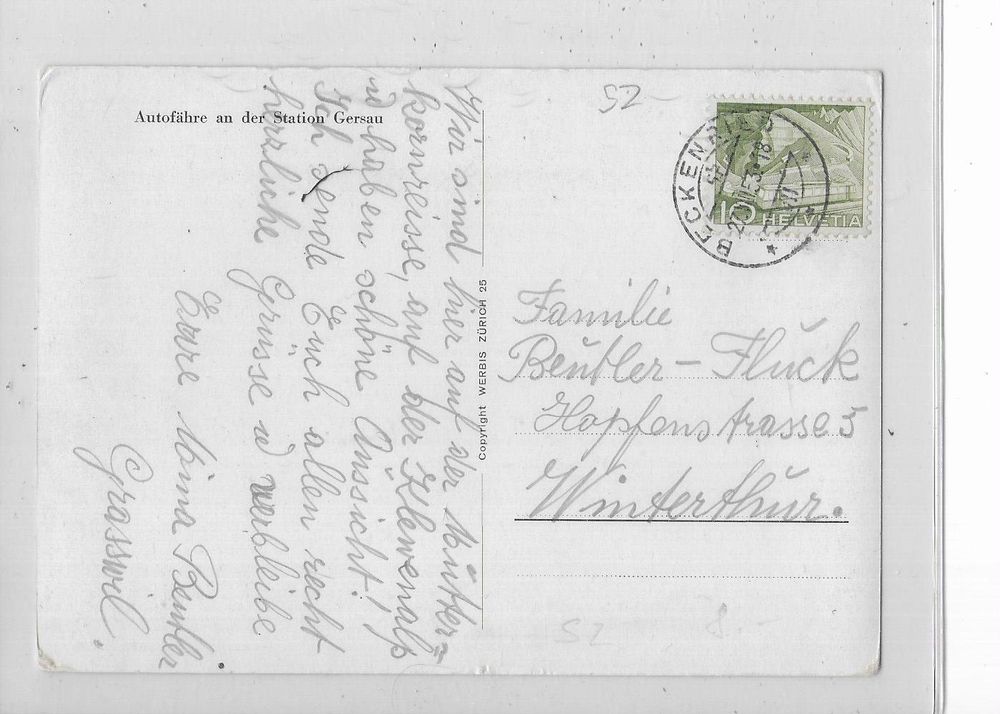 Autofähre an der Station Gersau
Wir sind hier auf der Mütter=
kornreisse, auf der Klewenalp
u haben schöne Aussicht!
Ich sende Euch allen recht
herzliche Grüsse u verbleibe
Eure Mina Beutler
Grasswil.
Copyright WERBIS ZÜRICH 25
52-
BECKENRIED
53.18
10 HELVETIA
Familie
Beutler-Fluck
Hopfenstrasse 5
Winterthur.
52
8.-